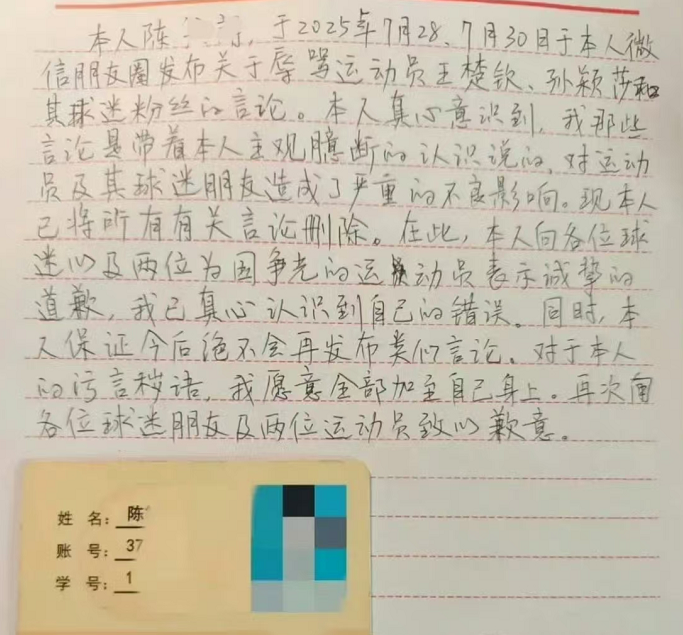 本人陈，于2025年7月28、7月30日于本人微
信朋友圈发布关于辱骂运动员王楚钦、孙颖莎和
其球迷粉丝的言论。本人真心意识到，我那些
言论是带着本人主观臆断的认识说的，对运动
员及其球迷朋友造成了严重的不良影响。现本人
已将所有有关言论删除。在此，本人向各位球
迷以及两位为国争光的运动员表示诚挚的
道歉，我已真心认识到自己的错误。同时，本
人保证今后绝不会再发布类似言论。对于本人
的污言秽语，我愿意全部加至自己身上。再次向
各位球迷朋友及两位运动员致以歉意。
姓 名：陈
账 号：37
学 号：1